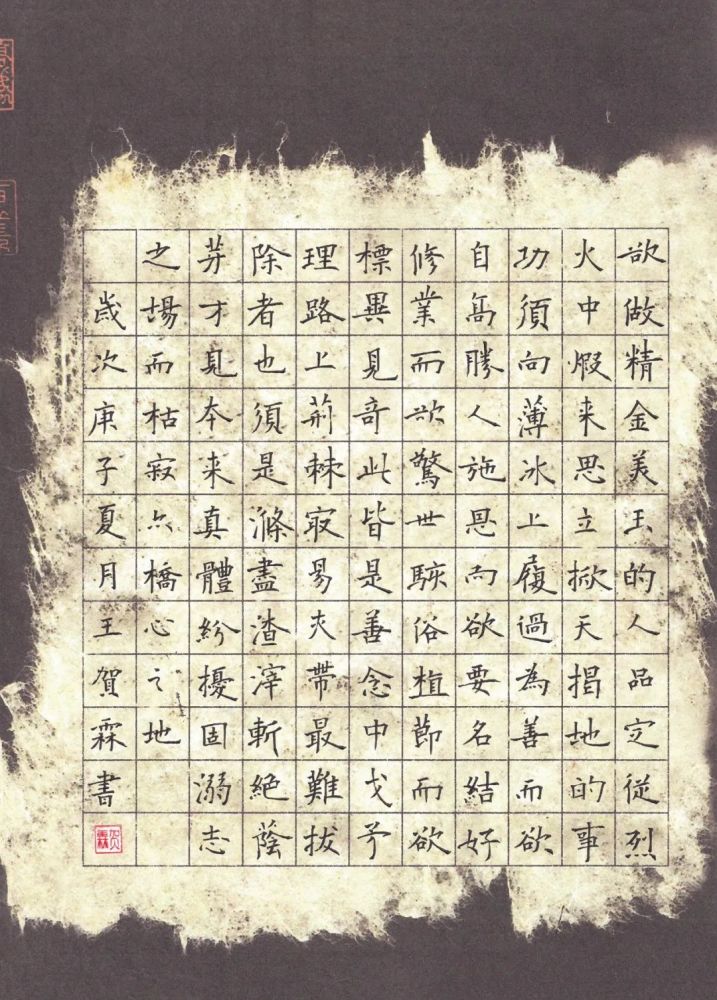 欲做精金美玉的人品定從烈
火中煆来思立掀天揭地的事
功須向薄冰上履過為善而欲
自髙勝人施恩而欲要名結好
修業而欲驚世駭俗植節而欲
標異見奇此皆是善念中戈矛
理路上荊棘最易夾帶最難拔
除者也須是滌盡渣滓斬絕蔭
芽才見本来真體紛擾固溺志
之場而枯寂亦槁心之地
歲次庚子夏月王賀霖書